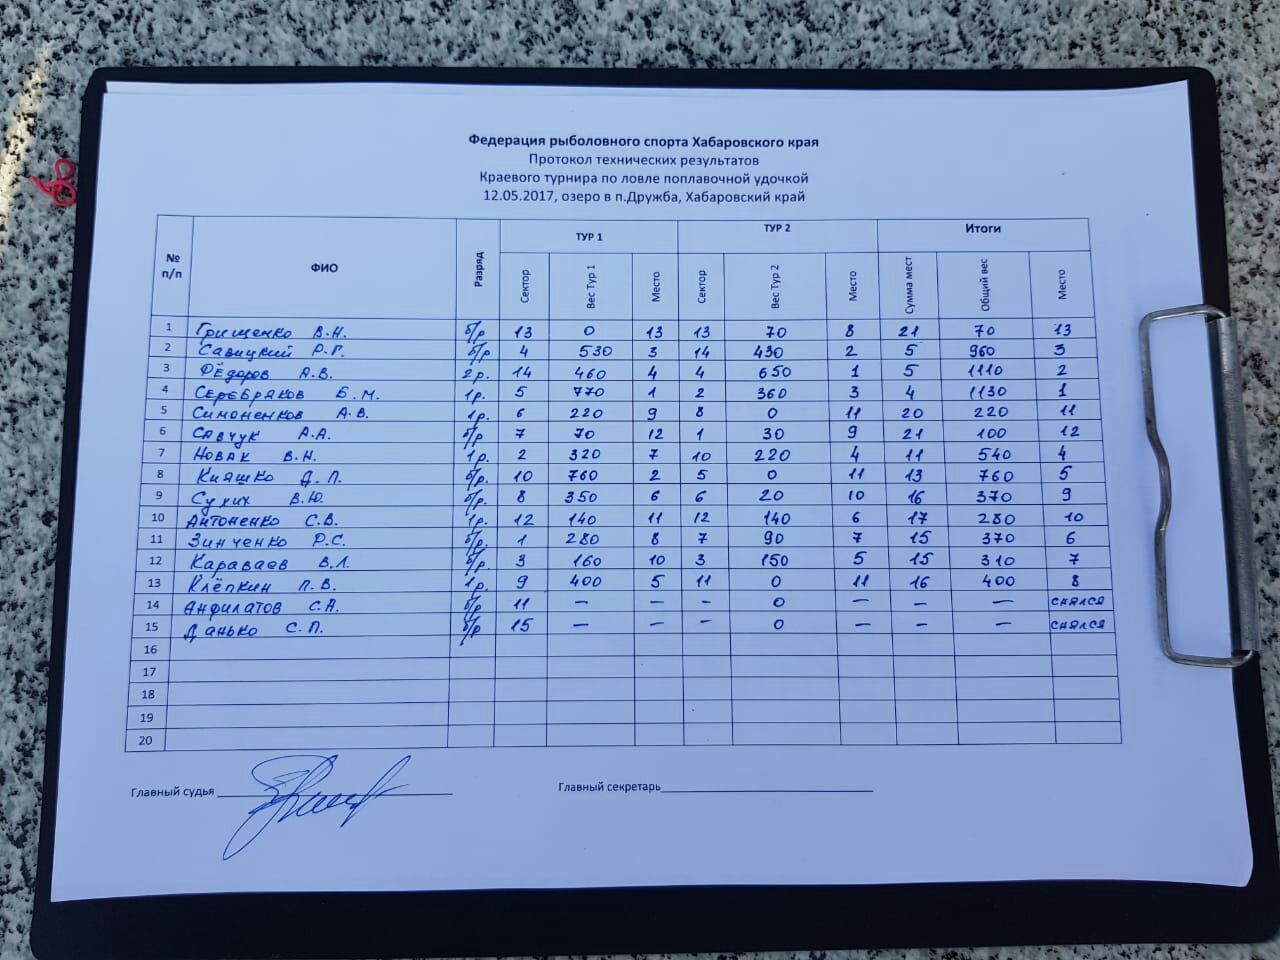 Федерация рыболовного спорта Хабаровского края
Протокол технических результатов
Краевого турнира по ловле поплавочной удочкой
12.05.2017, озеро в п.Дружба, Хабаровский край
№ п/п ФИО Разряд ТУР 1 ТУР 2 Итоги
Сектор Вес Тур 1 Место Сектор Вес Тур 2 Место Сумма мест Общий вес Место
1 Грищенко В.Н. б/р 13 0 13 13 70 8 21 70 13
2 Савицкий Р.Г. б/р 4 530 3 14 430 2 5 960 3
3 Фёдоров А.В. 2р. 14 460 4 4 650 1 5 1110 2
4 Серебряков Б.М. 1р. 5 770 1 2 360 3 4 1130 1
5 Симоненков А.В. 1р. 6 220 9 8 0 11 20 220 11
6 Савчук А.А. б/р 7 70 12 1 30 9 21 100 12
7 Новак В.Н. 1р. 2 320 7 10 220 4 11 540 4
8 Кияшко Д.П. б/р. 10 760 2 5 0 11 13 760 5
9 Сухих В.Ю. б/р. 8 350 6 6 20 10 16 370 9
10 Антоненко С.В. 1р. 12 140 11 12 140 6 17 280 10
11 Зинченко Р.С. б/р. 1 280 8 7 90 7 15 370 6
12 Караваев В.Л. б/р. 3 160 10 3 150 5 15 310 7
13 Клёпкин П.В. 1р. 9 400 5 11 0 11 16 400 8
14 Анфилатов С.А. б/р 11 — — – 0 — — — снялся
15 Данько С.П. б/р 15 — — – 0 — — — снялся
16
17
18
19
20
Главный судья Главный секретарь